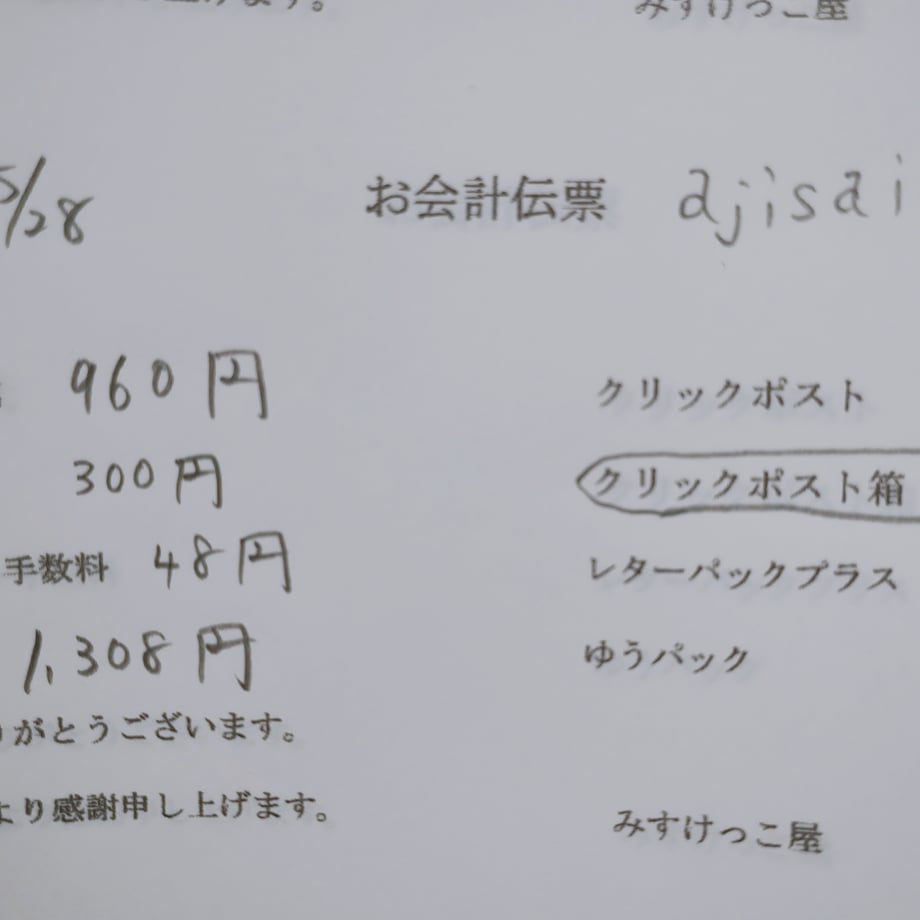 上げます。 みすけっこ屋
5/28 お会計伝票 ajisai
960円 クリックポスト
300円 クリックポスト箱
手数料 48円 レターパックプラス
1,308円 ゆうパック
がとうございます。
より感謝申し上げます。
みすけっこ屋